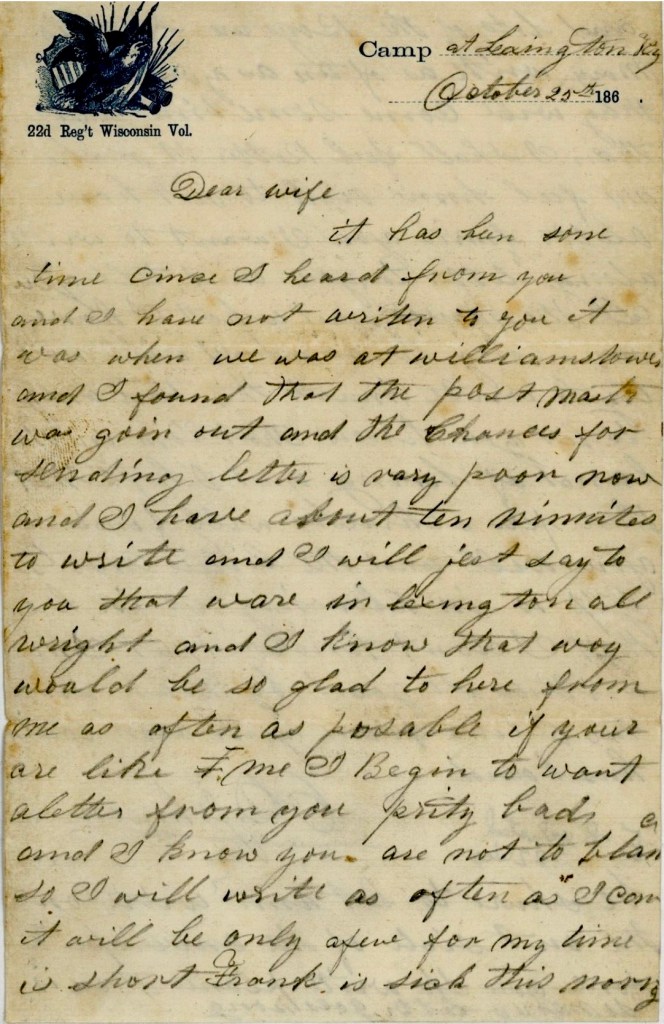 Camp at Lexington Ky
October 25th 186 .
22d Reg't Wisconsin Vol.
Dear wife
it has ben some
time cince I heard from you
and I have not writen to you it
was when we was at williamstown
and I found that the post mast
was goin out and the Chances for
sending letter is vary poor now
and I have about ten minnites
to write and I will jest say to
you that ware in lexington all
wright and I know that
would be so glad to here from
me as often as posable if your
are like me I Begin to want
a letter from you prity bad
and I know you are not to blam
so I will write as often as I can
it will be only a few for my time
is short Frank is sick this morng